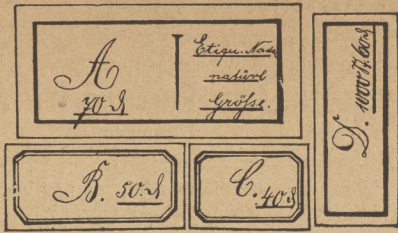 A
70 ₰
Etiqu. Nade
natürl
Größe.
B. 50 ₰
C. 40 ₰
D. 1000 M. 60 ₰